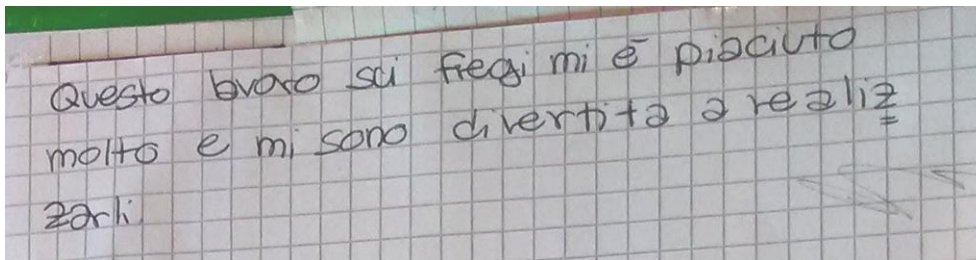 Questo bvoro sci fregi mi è piaciuto
molto e mi sono divertita a realiz
zarli.